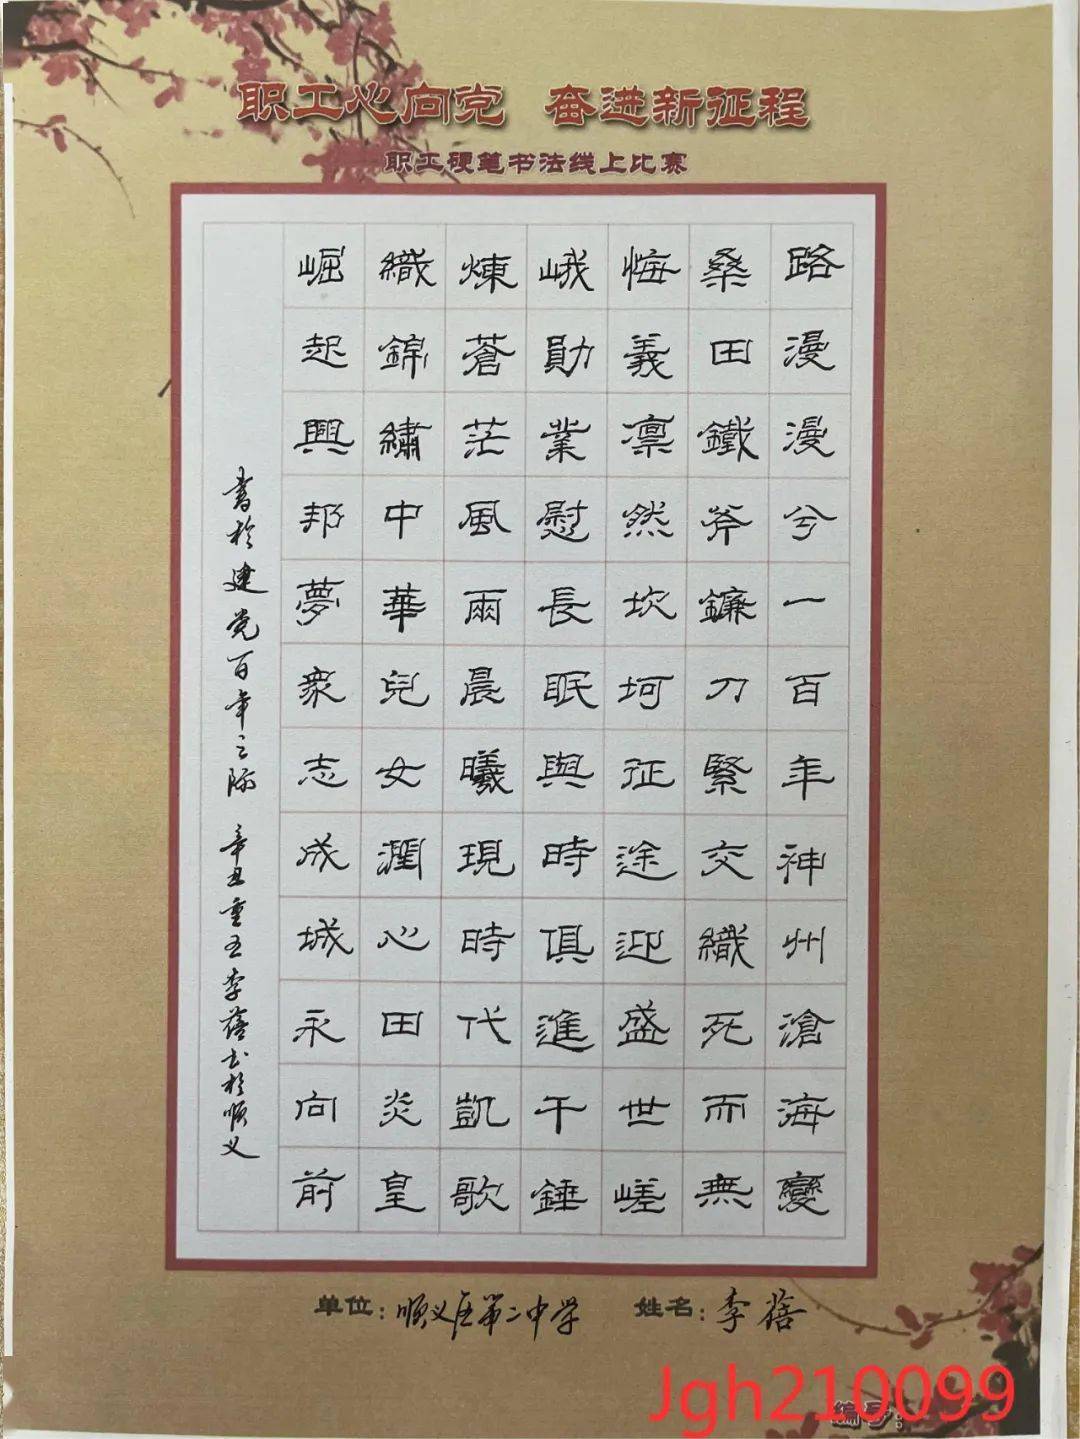 职工心向党 奋进新征程
职工硬笔书法线上比赛
路漫漫兮一百年神州滄海變
桑田鐵斧鐮刀緊交織死而無
悔義凛然坎坷征途迎盛世嵯
峨勛業慰長眠與時俱進千錘
煉蒼茫風雨晨曦現時代凱歌
織錦繡中華兒女潤心田炎皇
崛起興邦夢衆志成城永向前
書於建党百年之际 辛丑重五李蓓书於顺义
单位：顺义区第二中学 姓名：李蓓
编号：
Jgh210099